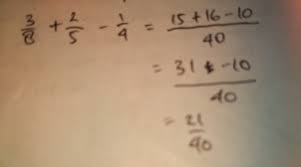 3/8 + 2/5 - 1/4 = 15 + 16 - 10 / 40
= 31 - 10 / 40
= 21/40